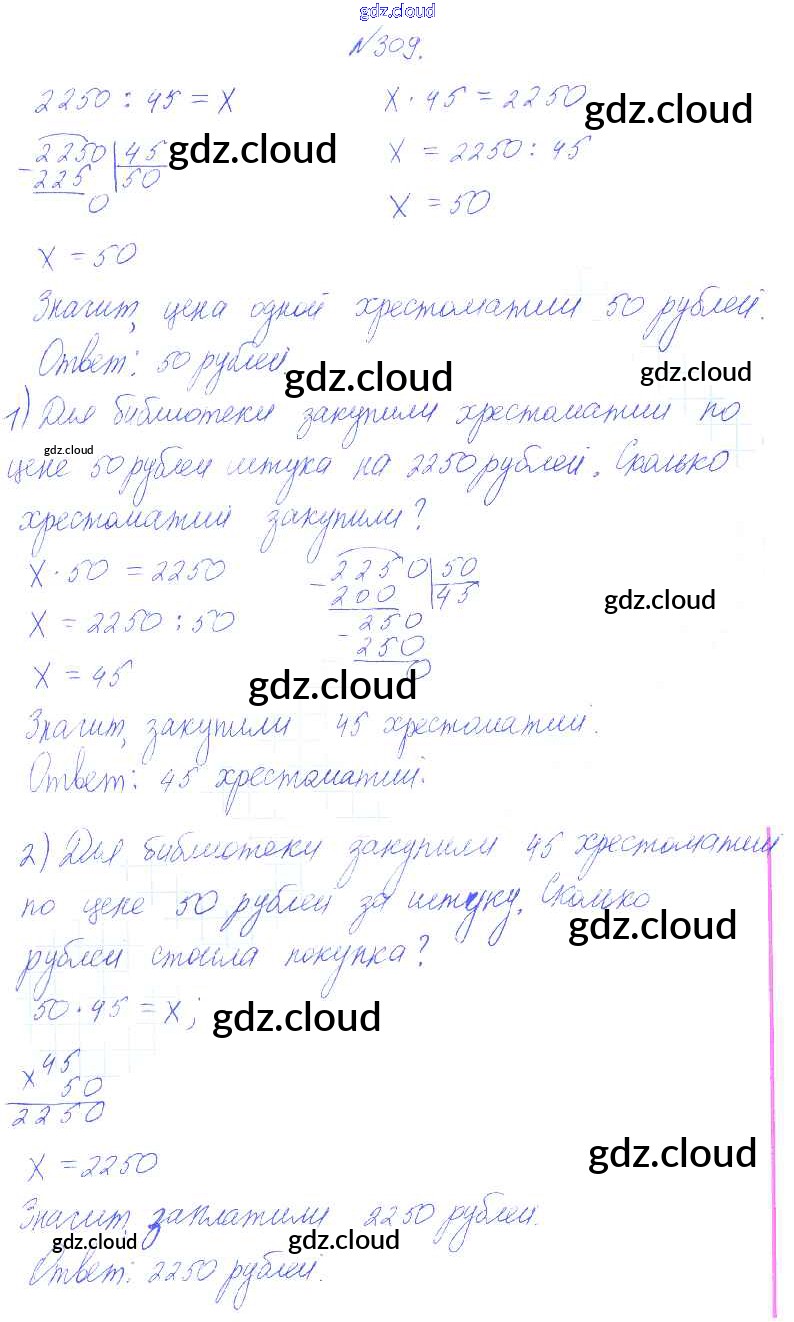 gdz.cloud
№309.
2250 : 45 = x
x · 45 = 2250
gdz.cloud
2250 | 45
gdz.cloud
x = 2250 : 45
- 225 | 50
0
x = 50
x = 50
Значит, цена одной хрестоматии 50 рублей.
Ответ: 50 рублей.
gdz.cloud
gdz.cloud
1) Для библиотеки закупили хрестоматии по
gdz.cloud
цене 50 рублей штука на 2250 рублей. Сколько
хрестоматий закупили?
x · 50 = 2250
- 2250 | 50
200 | 45
gdz.cloud
x = 2250 : 50
250
- 250
0
x = 45
gdz.cloud
Значит, закупили 45 хрестоматий.
Ответ: 45 хрестоматий.
2) Для библиотеки закупили 45 хрестоматий
по цене 50 рублей за штуку. Сколько
gdz.cloud
рублей стоила покупка?
50 · 45 = x;
gdz.cloud
x 45
50
2250
gdz.cloud
x = 2250
Значит, заплатили 2250 рублей.
gdz.cloud
gdz.cloud
Ответ: 2250 рублей.